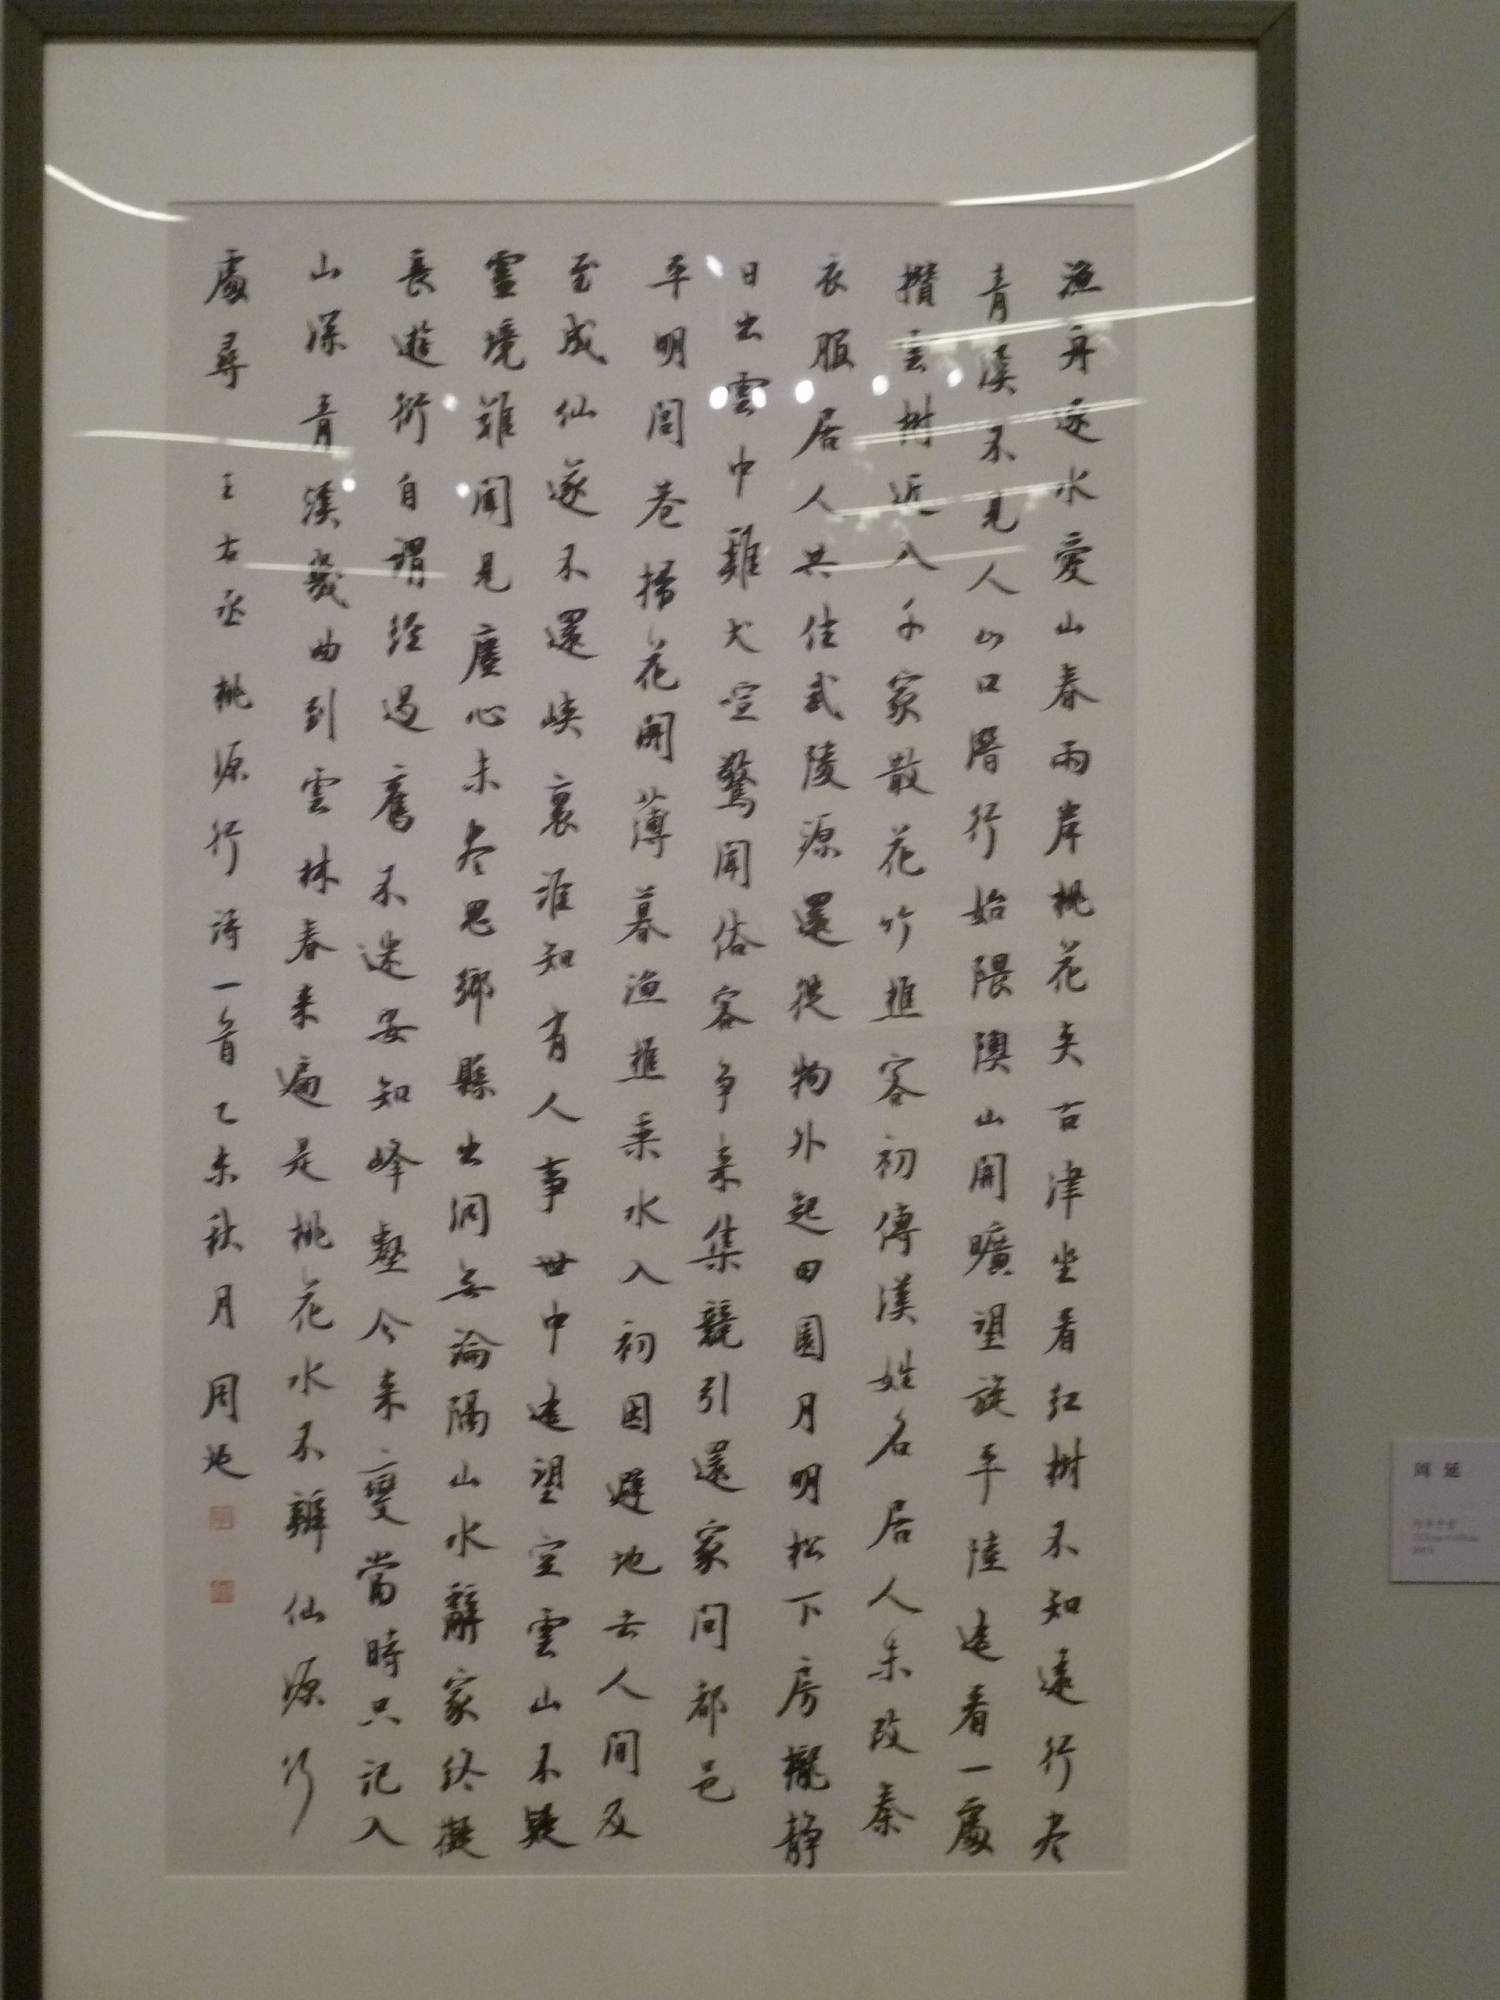 漁舟逐水愛山春兩岸桃花夾古津坐看紅樹不知遠行盡
青溪不見人山口潛行始隈隩山開曠望旋平陸遠看一處
攢雲樹近入千家散花竹樵客初傳漢姓名居人未改秦
衣服居人共住武陵源還從物外起田園月明松下房櫳靜
日出雲中雞犬喧驚聞俗客爭來集競引還家問都邑
平明閭巷掃花開薄暮漁樵乘水入初因避地去人間及
至成仙遂不還峽裏誰知有人事世中遙望空雲山不疑
靈境難聞見塵心未盡思鄉縣出洞無論隔山水辭家終擬
長遊衍自謂經過舊不迷安知峰壑今來變當時只記入
山深青溪幾曲到雲林春來遍是桃花水不辨仙源何
處尋 王右丞桃源行詩一首乙未秋月周延
周 延